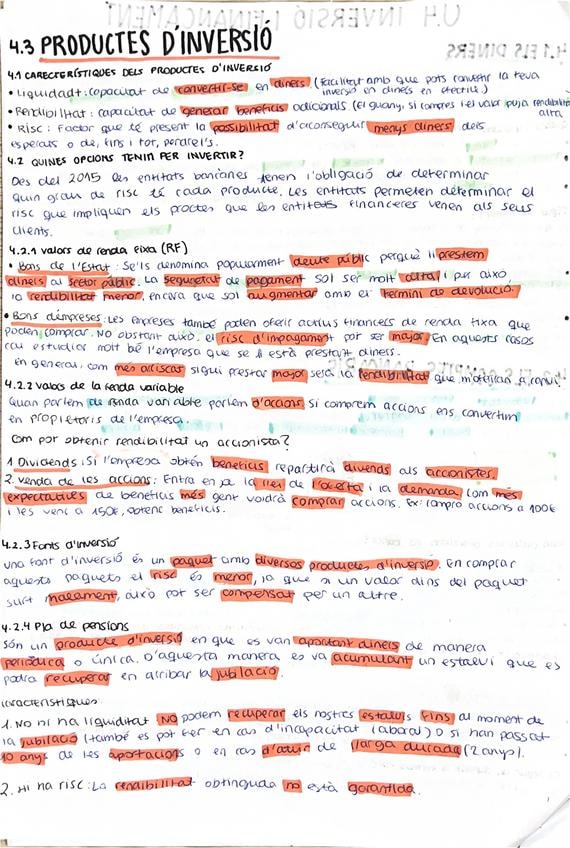 4.3 PRODUCTES D'INVERSIÓ
4.1 CARECTERÍSTIQUES DELS PRODUCTES D'INVERSIÓ
• Liquidadt: capacitat de convertir-se en diners (Facilitat amb que pots convertir la teva
inversió en diners en efectiu)
• Rendibilitat: capacitat de generar beneficis adicionals (El guany, si compres i el valor puja rendibilitat
alta)
• Risc: Factor que té present la possibilitat d'aconseguir menys diners dels
esperats o de, fins i tot, perdre'ls.
4.2 QUINES OPCIONS TENIM PER INVERTIR?
Des del 2015 les entitats bancàries tenen l'obligació de determinar
quin grau de risc té cada producte. Les entitats permeten determinar el
risc que impliquen els proctes que les entitats financeres venen als seus
clients.
4.2.1 valors de renda fixa (RF)
• Bons de l'Estat: Se'ls denomina popularment deute públic perquè li prestem
diners al sector públic. La seguretat de pagament sol ser molt alta i per això,
la rendibilitat menor, encara que sol augmentar amb el termini de devolució.
• Bons d'empreses: Les empreses també poden oferir actius financers de renda fixa que
poden comprar. No obstant això, el risc d'impagament pot ser major. En aquests casos
cal estudiar molt bé l'empresa que se li està prestant diners.
En general, com més arriscat sigui prestar major serà la rendibilitat que m'oferiran a canvi.
4.2.2 valors de la renda variable
Quan parlem de renda variable parlem d'accions. Si comprem accions, ens convertim
en propietaris de l'empresa.
Com pot obtenir rendibilitat un accionista?
1. Dividends: Si l'empresa obtén beneficis repartirà divends als accionistes.
2. venda de les accions: Entra en joc la llei de l'oferta i la demanda com més
expectatives de beneficis més gent voldrà comprar accions. Ex: compro accions a 100€
i les venc a 150€, obtenc beneficis.
4.2.3 Fonts d'inversió
una font d'inversió és un paquet amb diversos productes d'inversió. En comprar
aquests paquets el risc és menor, ja que si un valor dins del paquet
surt malament, això pot ser compensat per un altre.
4.2.4 Pla de pensions
Són un producte d'inversió en que es van aportant diners de manera
periòdica o única. D'aquesta manera es va acumulant un estalvi que es
podrà recuperar en arribar la jubilació.
caracteristiques
1. No hi ha liquiditat NO podem recuperar els nostres estalvis fins al moment de
la jubilació (també es pot fer en cas d'incapacitat laboral) o si han passat
10 anys de les aportacions o en cas d'atur de llarga durada (2 anys).
2. Hi ha risc: La rendibilitat obtinguda no està garantida.